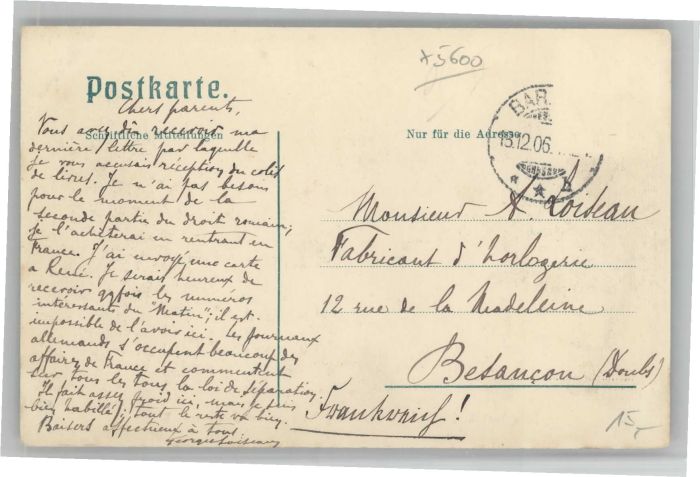 x5600
Postkarte.
Schriftliche Mitteilungen
Nur für die Adresse
BAR
13.12.06.
b
Chers parents,
Vous avez dû recevoir ma
dernière lettre par laquelle
je vous accusais réception du colis
de livres. Je n'ai pas besoin
pour le moment de la
seconde partie du droit romain;
je l'achèterai en rentrant en
France. J'ai envoyé une carte
a René. Je serais heureux de
recevoir qqfois les numeros
intéressants du "Matin"; il est
impossible de l'avoir ici. Les journaux
allemands s'occupent beaucoup des
affaires de France et commentent
sur tous les tons la loi de séparation.
Il fait assez froid ici, mais je suis
bien habillé; tout le reste va bien.
Baisers affectueux à tous.
Georges Loiseau
Monsieur A. Loiseau
Fabricant d'horlogerie
12 rue de la Madeleine
Besançon (Doubs)
Frankreich!
15,-